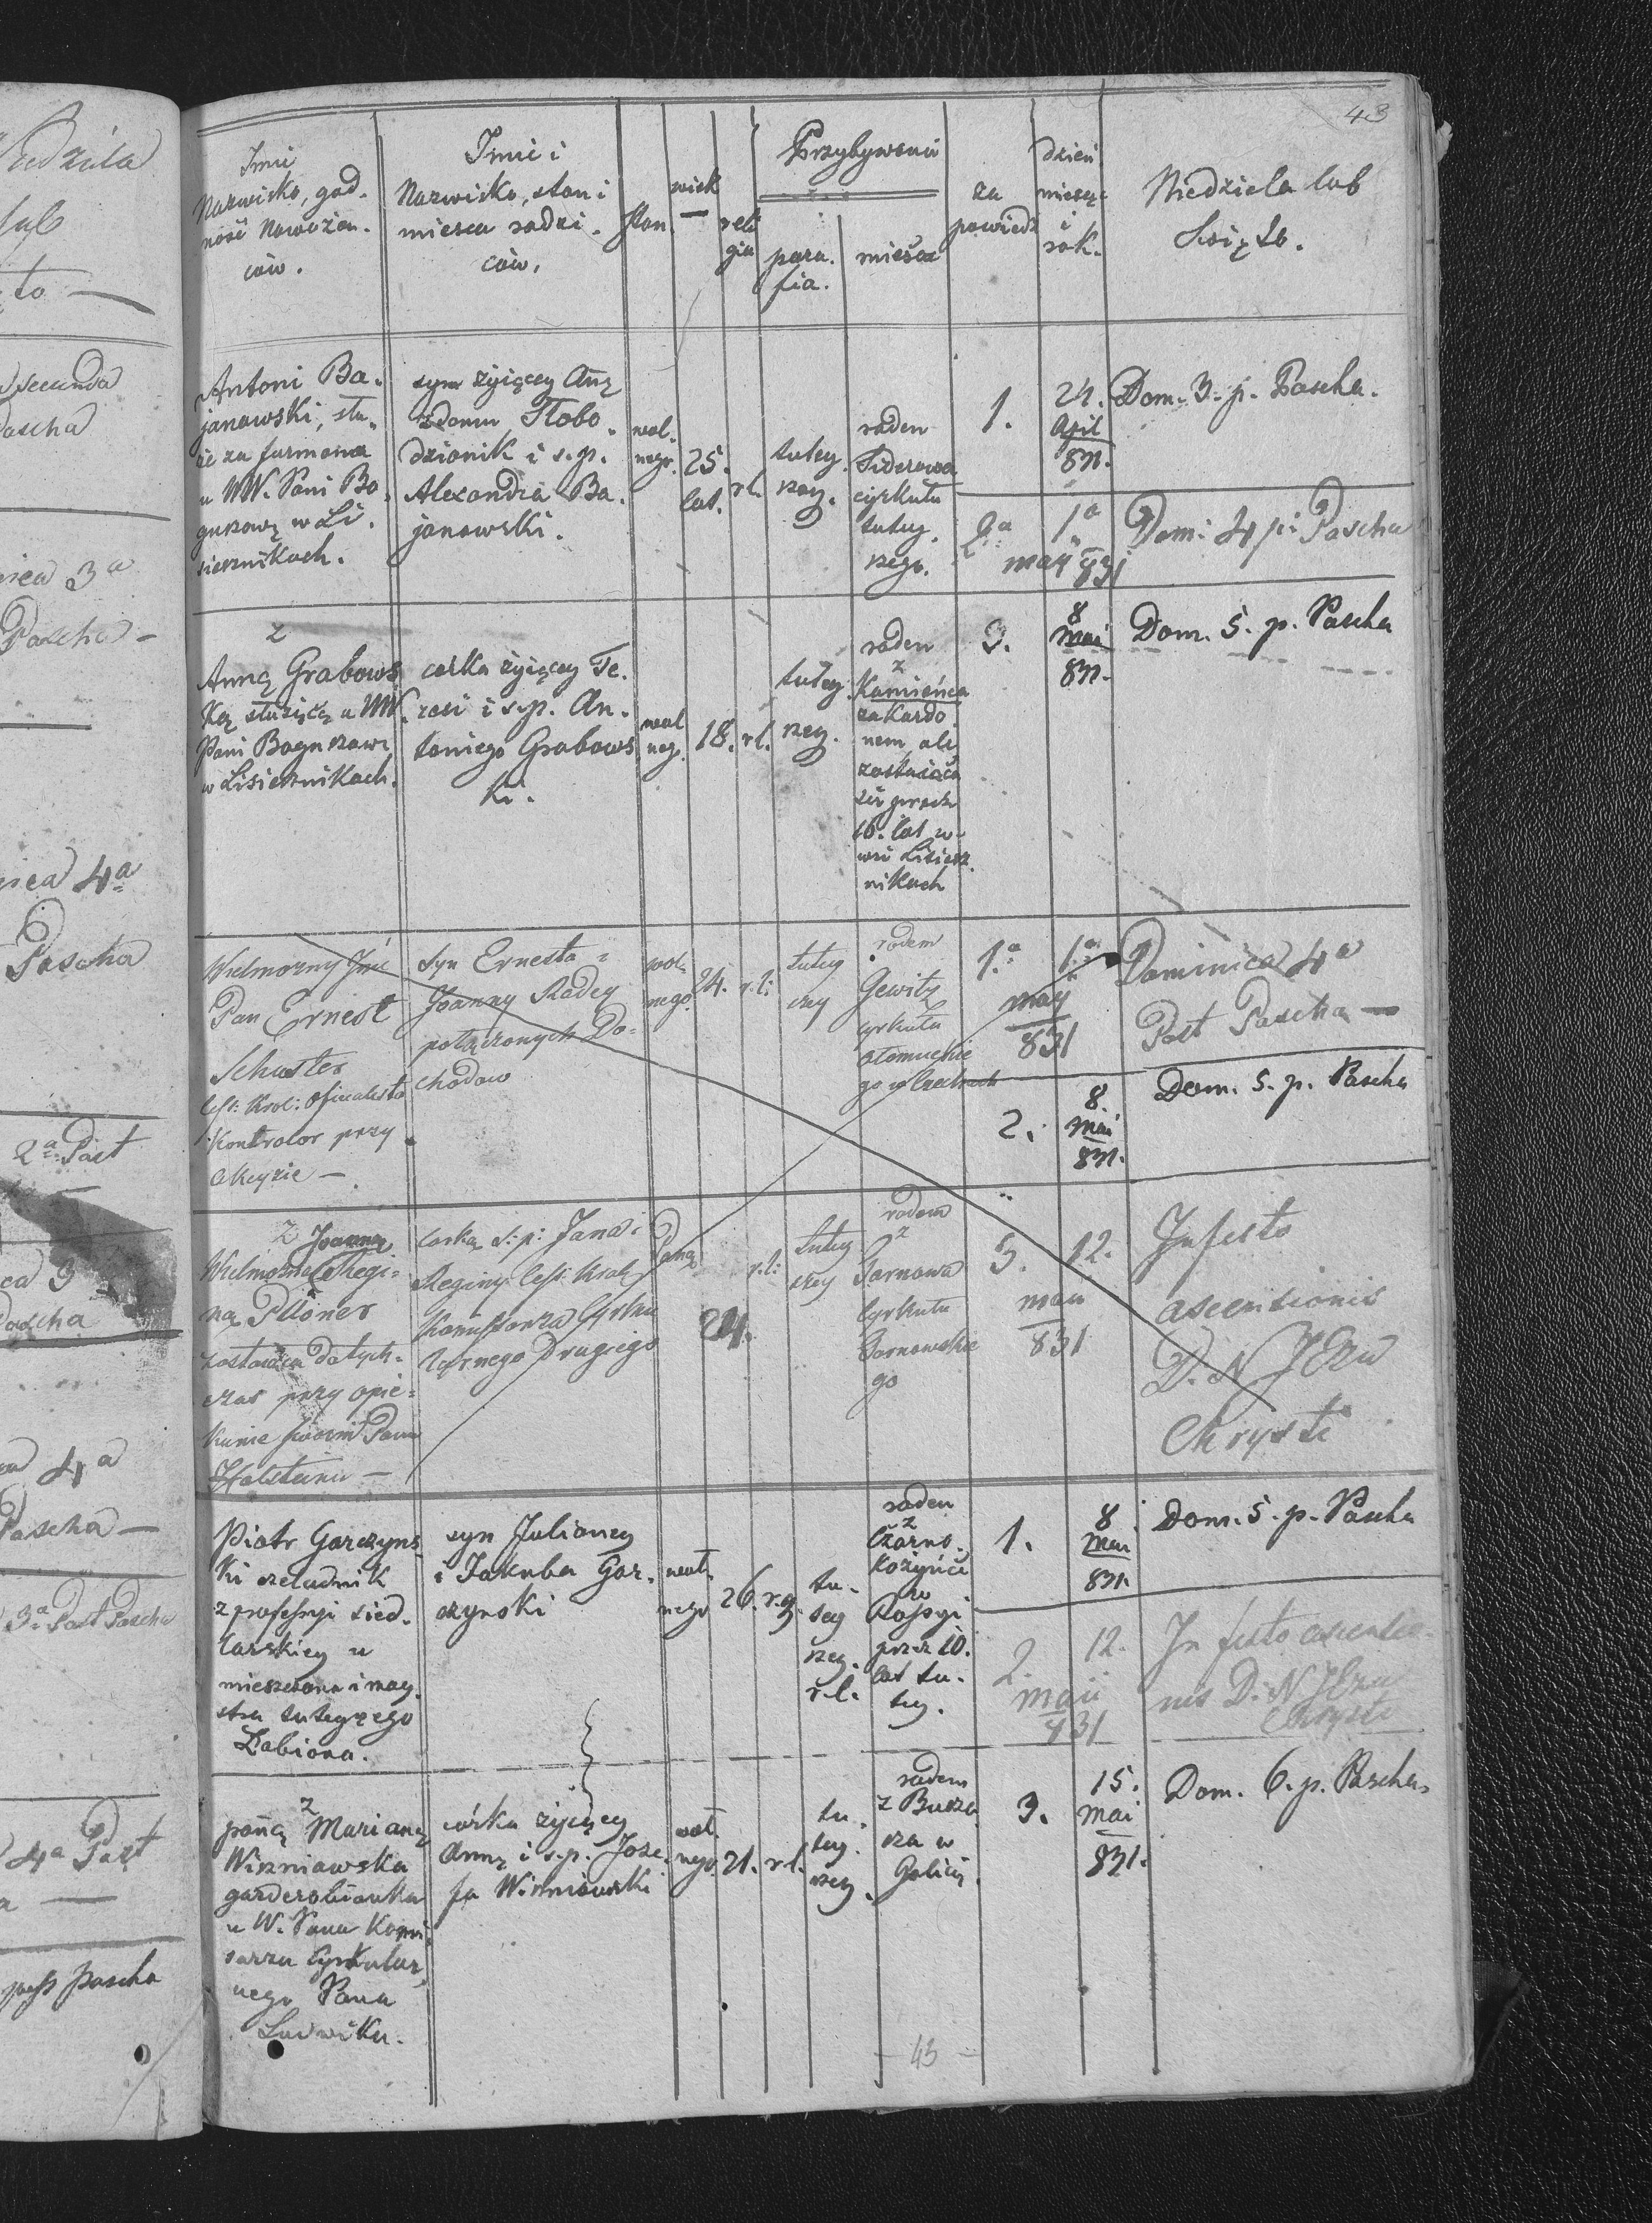 43
Imie
Nazwisko, god-
ność Nowożeń-
ców.
Imie i
Nazwisko, stan i
miesca rodzi-
ców.
stan.
wiek
reli
gia
Przybywania
para-
fia.
miesca
za
powiedz
dzień
miesiąc
i
rok.
Niedziela lub
Swięto.
Antoni Ba-
janowski, słu-
ży za furmana
u WW. Pani Bo-
guszowy w Li-
siecznikach.
syn żyiącey Anny
z domu
dzionik i s.p.
Alexandra Ba-
janowski.
wol-
nego.
25.
lat.
r.l.
tutey-
szey.
rodem
cyrkułu
tutey-
szego.
1.
24.
April
831.
Dom. 3. p. Pascha.
2a
1a
maij 831
Dom: 4 p: Pascha
z
Anną Grabows
ką służącą u WW.
Pani Boguszowy
w Lisiecznikach.
corka żyiącey Te-
resi i s.p. An-
toniego Grabows
ki.
wol
neg.
18.
r.l.
tutey-
szey.
rodem
z
Kamieńca
za Kordo
nem ale
zostaiąca
już przez
16. lat w
wsi Lisiecz
nikach
3.
8
Mai
831.
Dom. 5. p. Pascha
Wielmożny Jmć
Pan Ernest
Schuster
Ces: Krol: Oficialista
Kontrolor przy
Akcyzie —
Syn Ernesta i
Joanny Radcy
połączonych Do-
chodow
wol-
nego
24.
r.l.
tutey
szey
rodem
Gewitz
cyrkułu
ołomuckie
go w Czechach
1.a
1.a
may
831
Dominica 4a
Post Pascha —
2.
8.
Mai
831.
Dom. 5. p. Pascha
z Joanną
Wielmożną Regi-
ną Pllöner
zostaiąca dotych-
czas przy opie-
kunie swoim Panu
Holsteinu —
Corką s: p: Jana i
Reginy Ces: Krol:
Komissarza Cyrku
larnego Drugiego
Panną
24.
r.l.
tutey
szey
rodem
z
Tarnowa
Cyrkułu
Tarnowskie
go
3.
12.
maii
831
In festo
ascensionis
D. N JEzu
Chrysti
Piotr Garczyns
ki czeladnik
z professyi siod-
larskiey u
mieszczana i may-
stra tuteyszego
Babiona.
syn Julianey
i Jakuba Gar-
czynski
wol-
nego
26.
r.g.
tu-
tey
szey.
r.l.
rodem
z
Czarno-
kozyńce
w
Rossyi
przez 10.
lat tu-
tey.
1.
8
Mai
831.
Dom. 5. p. Pascha
2.
12.
maii
831
In festo ascensio-
nis D. N JEzu
Chrysti
z
panną Marianą
Wiszniawska
garderobianka
u W. Pana Komi-
sarza Cyrkular-
nego Pana
Ludwika.
córka żyiącey
Anny i s.p. Joze-
fa Wiszniawski
wol-
nego
21.
r.l.
tu-
tey-
szey.
rodem
z Bucza
cza w
Galicyi
3.
15.
Mai
831.
Dom. 6. p. Pascha
43